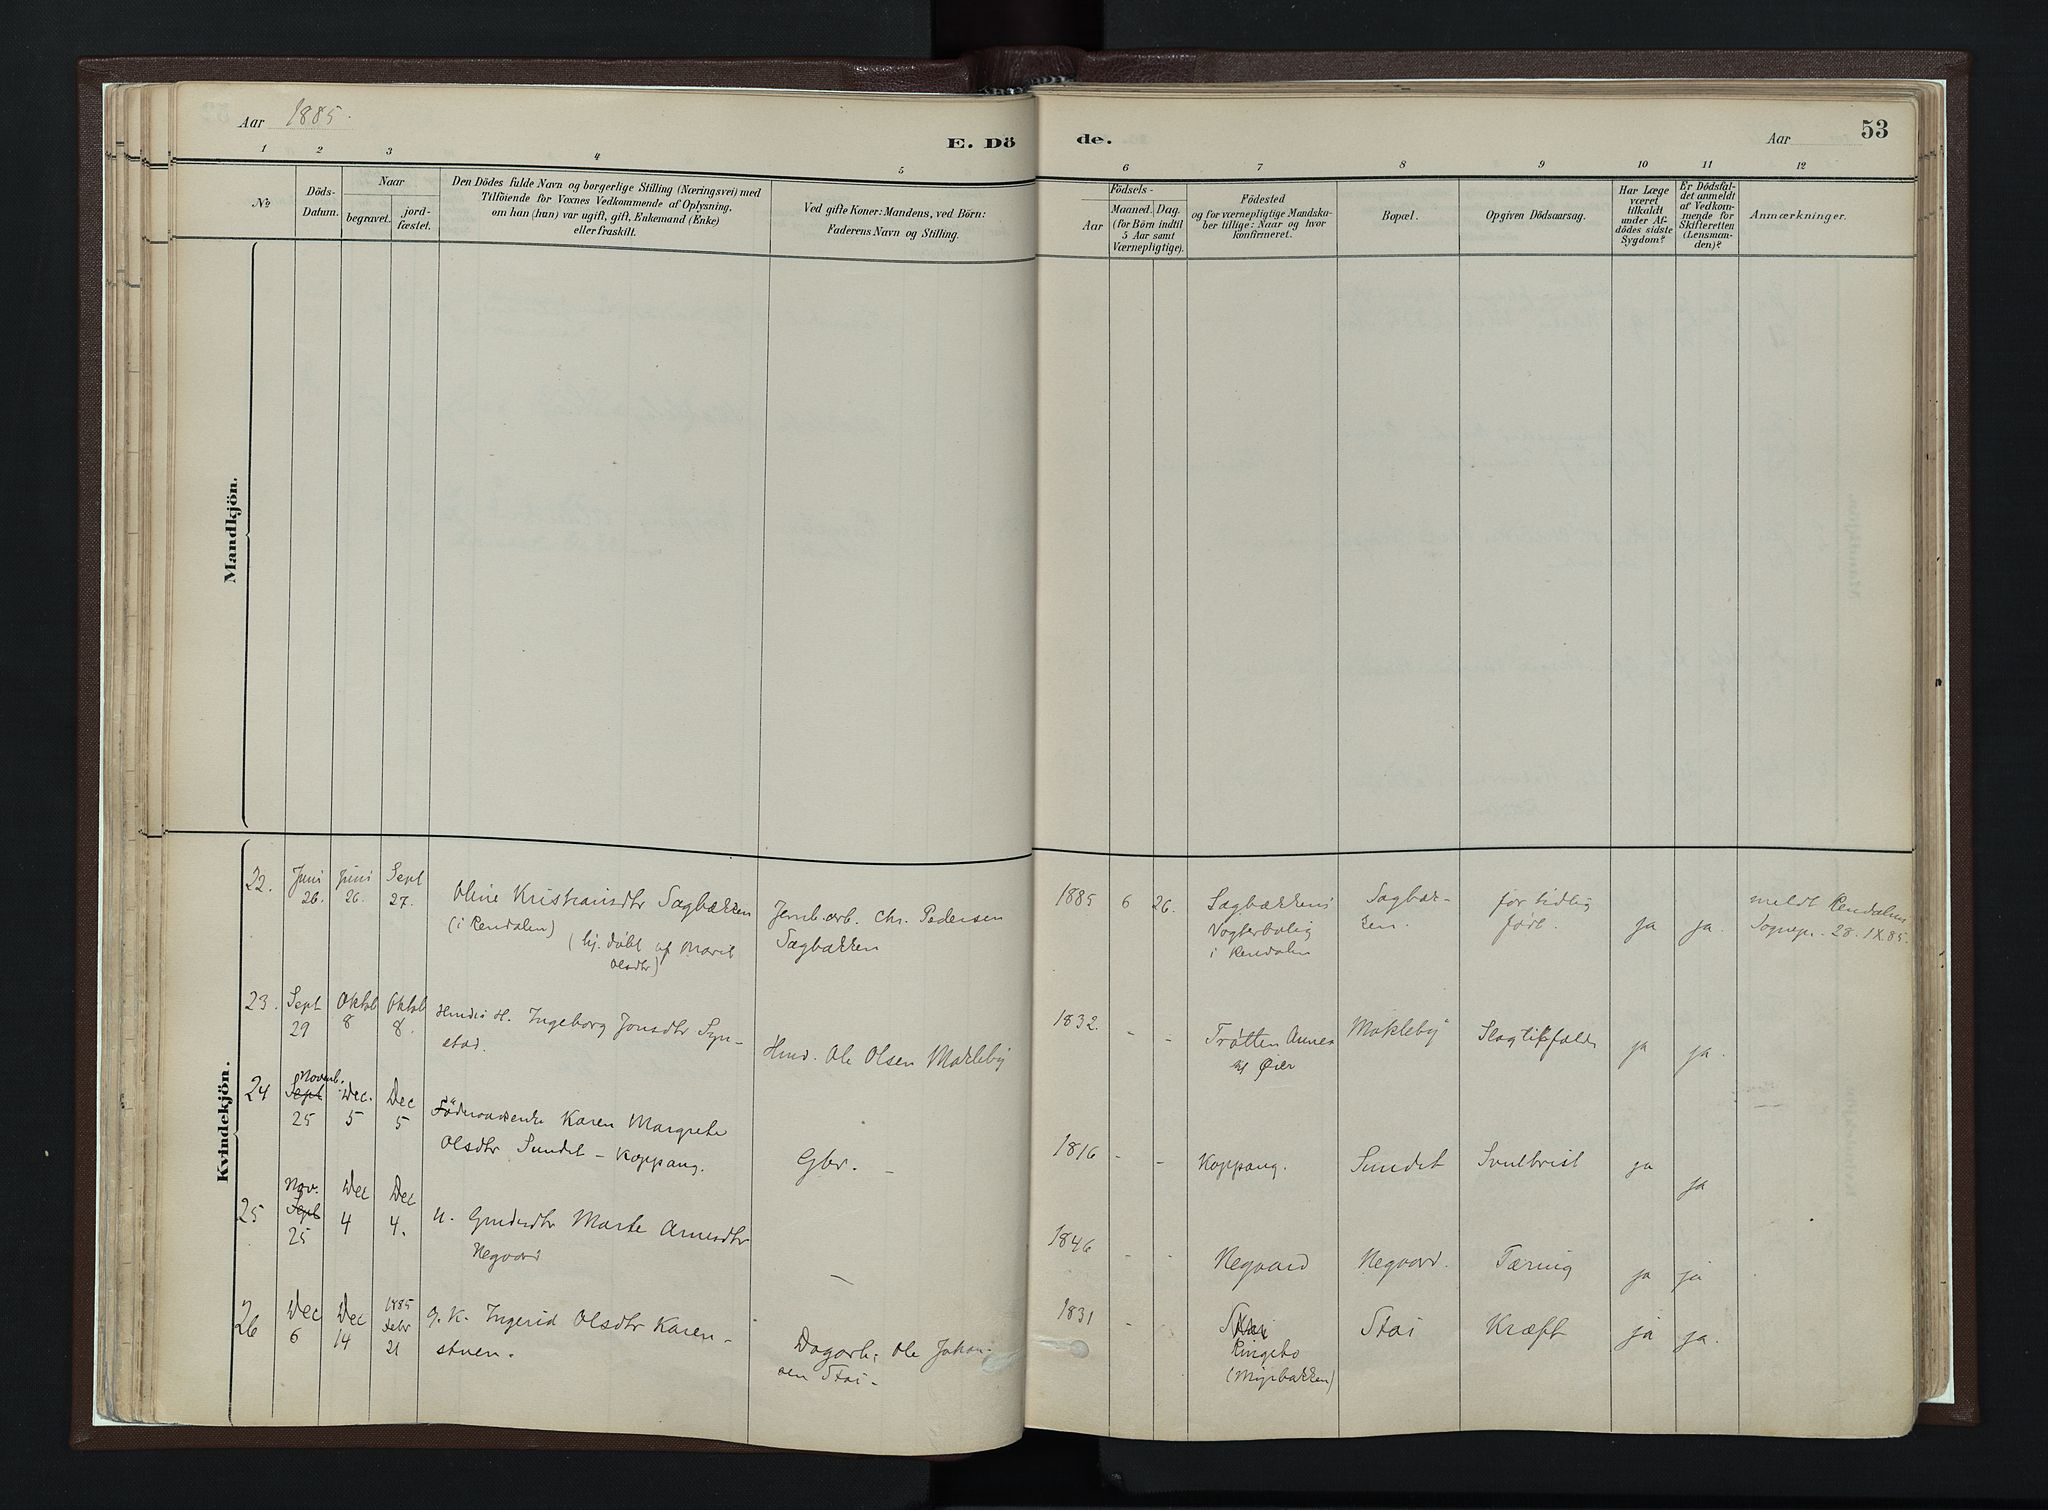 Aar 1885.
E. Dö
de.
Aar
53
1 2 3 4 5 6 7 8 9 10 11 12
No
Döds-
Datum.
Naar
begravet.
jord-
fæstet.
Den Dödes fulde Navn og borgerlige Stilling (Næringsvei) med
Tilföiende for Voxnes Vedkommende af Oplysning,
om han (hun) var ugift, gift, Enkemand (Enke)
eller fraskilt.
Ved gifte Koner: Mandens, ved Börn:
Faderens Navn og Stilling.
Födsels-
Aar
Maaned. Dag.
(for Börn indtil
5 Aar samt
Værnepligtige).
Födested
og for værnepligtige Mandska-
ber tillige: Naar og hvor
konfirmeret.
Bopæl.
Opgiven Dödsaarsag.
Har Læge
været
tilkaldt
under Af-
dödes sidste
Sygdom?
Er Dödsfal-
det anmeldt
af Vedkom-
mende for
Skifteretten
(Lensman-
den)?
Anmærkninger.
Mandkjön.
Kvindekjön.
22.
Juni
26.
Juni
26.
Sept
27.
Oline Kristiansdtr Sagbækken
(i Rendalen)
(hj. døbt af Marit
Olsdtr)
Jernb. arb. Chr. Pedersen
Sagbakken
1885 6 26.
Sagbækkens
Vogterbolig
i Rendalen
Sagbæk-
ken.
for tidlig
født.
ja ja.
meldt Rendalens
Sognepr. 28.IX.85.
23.
Sept
29
Oktob
8
Oktob
8.
H. Ingeborg Jonsdtr Syn-
stad.
Hmd. Ole Olsen Mokleby
1832. - -
Trøtten Annex
til Øier
Mokleby
Slagtilfælde
ja ja.
24
Novemb.
Sept
25
Dec.
5
Dec
5
Föderaadsenke Karen Margrete
Olsdtr Sundet - Koppang.
Gbr. -
1816 - -
Koppang.
Sundet
ja
ja
25
Nov.
Sept
25
Dec
4
Dec
4.
u. Grdmdtr Marte Arnesdtr
Negaard
-
1846 - -
Negaard
Negaard.
Tæring
ja ja
26
Dec
6
Dec
14
1885
Febr
21
g. K. Ingerid Olsdtr Karen-
stuen.
Dagarb. Ole Johan-
sen Stai -
1831 -
Ringebo
Stai
Kræft
ja ja.